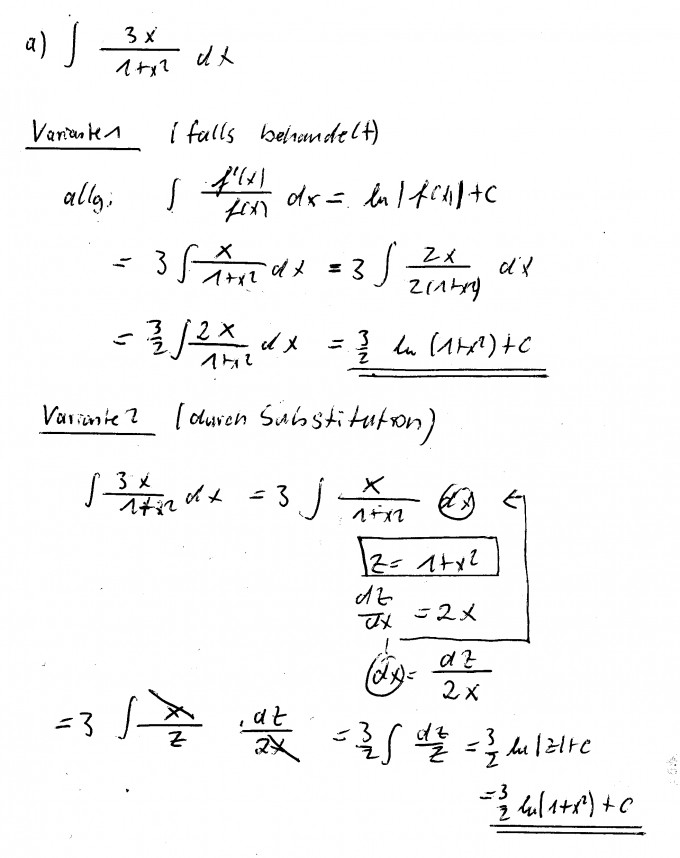 a) ∫ 3x / 1+x² dx
Variante 1 (falls behandelt)
allg: ∫ f'(x) / f(x) dx = ln |f(x)| + C
= 3 ∫ x / 1+x² dx = 3 ∫ 2x / 2(1+x²) dx
= 3/2 ∫ 2x / 1+x² dx = 3/2 ln (1+x²) + C
Variante 2 (durch Substitution)
∫ 3x / 1+x² dx = 3 ∫ x / 1+x² dx
z = 1+x²
dz / dx = 2x
dx = dz / 2x
= 3 ∫ x / z · dz / 2x = 3/2 ∫ dz / z = 3/2 ln |z| + C
= 3/2 ln(1+x²) + C